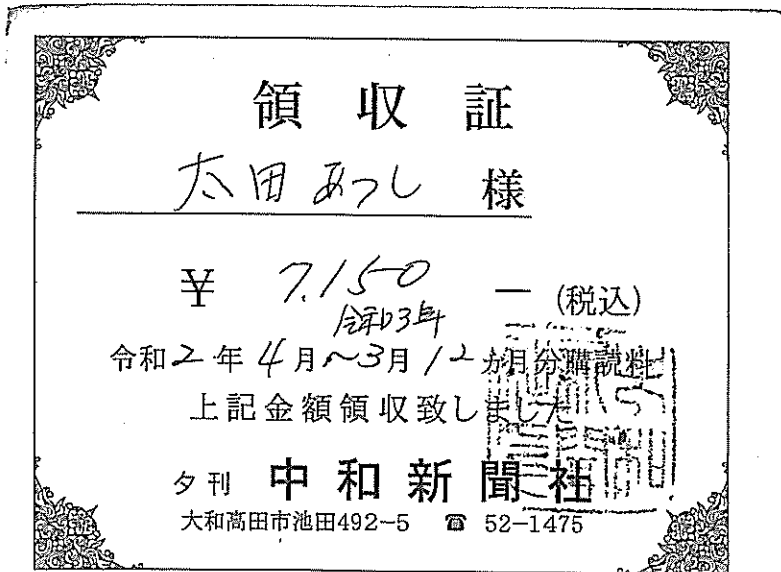 領収証
太田あつし 様
¥ 7.150 ー (税込)
令和3年
令和2年4月〜3月12カ月分購読料
上記金額領収致しました
夕刊 中和新聞社
大和高田市池田492-5 ☎ 52-1475